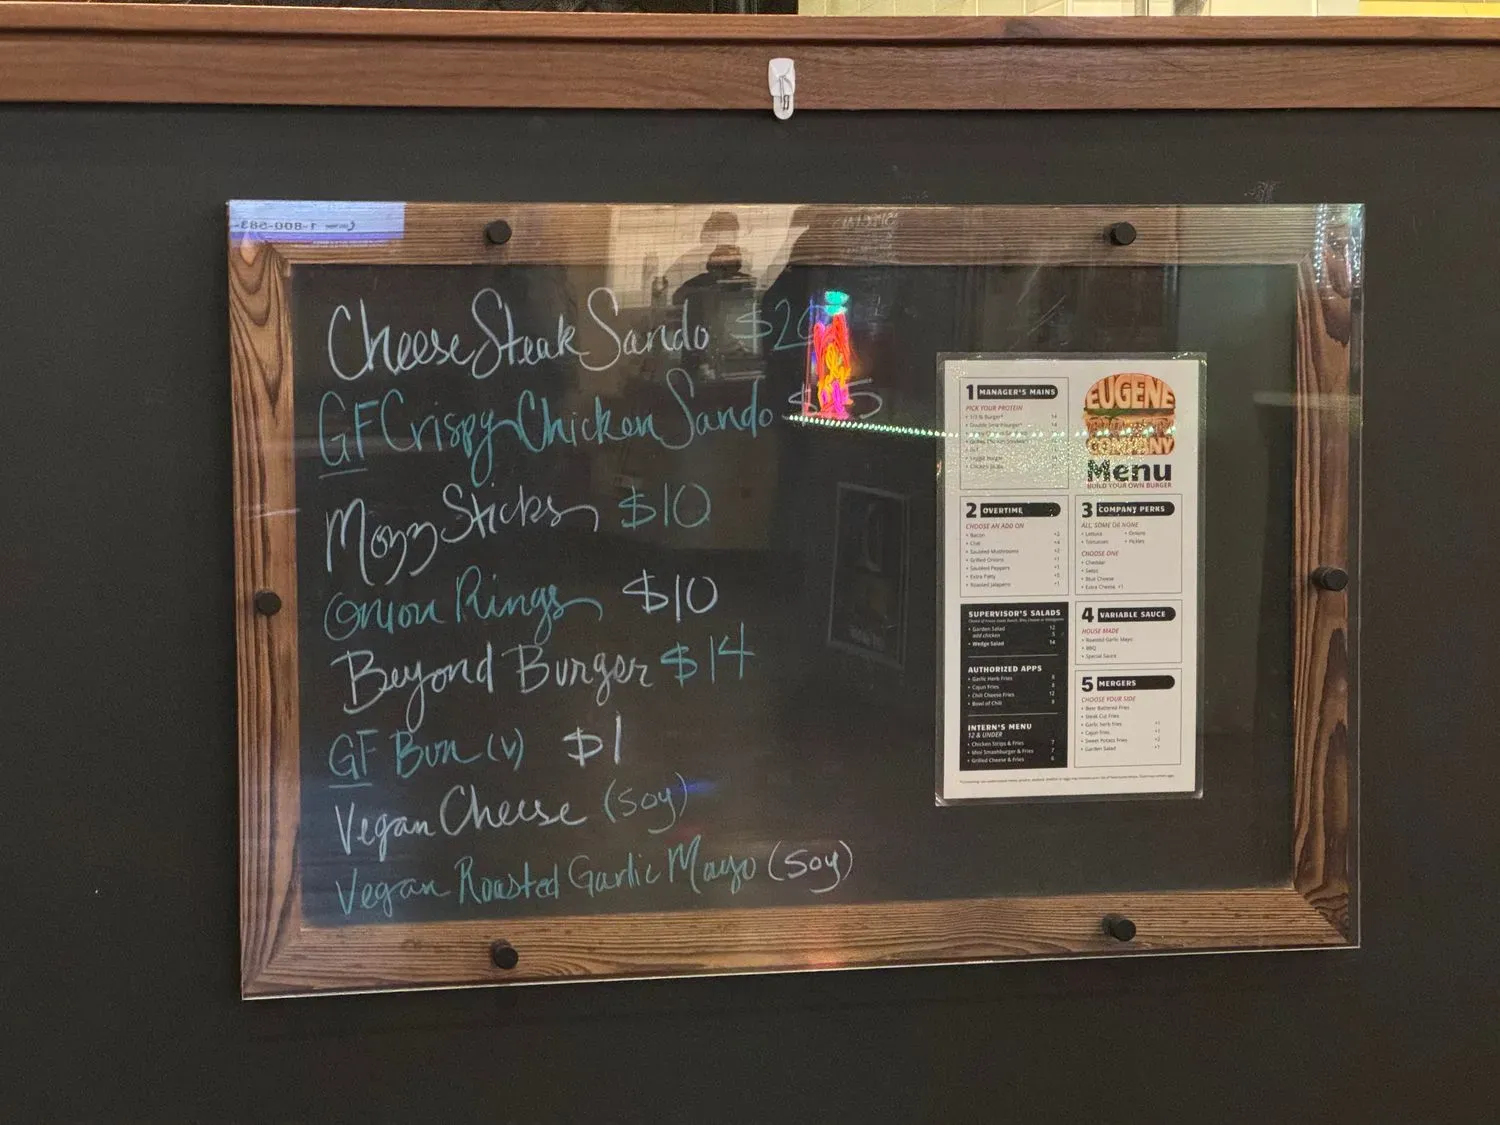 Cheese Steak Sando $20
GF Crispy Chicken Sando
Mozz Sticks $10
Onion Rings $10
Beyond Burger $14
GF Bun (V) $1
Vegan Cheese (Soy)
Vegan Roasted Garlic Mayo (Soy)
1-800-583-
EUGENE
COMPANY
Menu
BUILD YOUR OWN BURGER
1 MANAGER'S MAINS
PICK YOUR PROTEIN
• 1/3 lb Burger* 14
• Double Smashburger* 14
• Veggie Burger
• Chicken Strips
2 OVERTIME
CHOOSE AN ADD ON
• Bacon +2
• Chili +4
• Sautéed Mushrooms +2
• Grilled Onions +1
• Sautéed Peppers +1
• Extra Patty +5
• Roasted Jalapeño +1
3 COMPANY PERKS
ALL, SOME OR NONE
• Lettuce • Onions
• Tomatoes • Pickles
CHOOSE ONE
• Cheddar
• Swiss
• Blue Cheese
• Extra Cheese +1
SUPERVISOR'S SALADS
• Garden Salad 12
add chicken 5
• Wedge Salad 14
AUTHORIZED APPS
• Garlic Herb Fries 8
• Cajun Fries 8
• Chili Cheese Fries 12
• Bowl of Chili 9
INTERN'S MENU
12 & UNDER
• Chicken Strips & Fries 7
• Mini Smashburger & Fries 7
• Grilled Cheese & Fries 6
4 VARIABLE SAUCE
HOUSE MADE
• Roasted Garlic Mayo
• BBQ
• Special Sauce
5 MERGERS
CHOOSE YOUR SIDE
• Beer Battered Fries
• Steak Cut Fries
• Garlic Herb Fries +1
• Cajun Fries +1
• Sweet Potato Fries +2
• Garden Salad +1